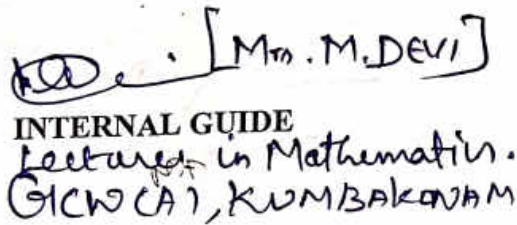 [Mrs. M. DEVI]
INTERNAL GUIDE
Lecturer in Mathematics.
GCW (A), KUMBAKONAM